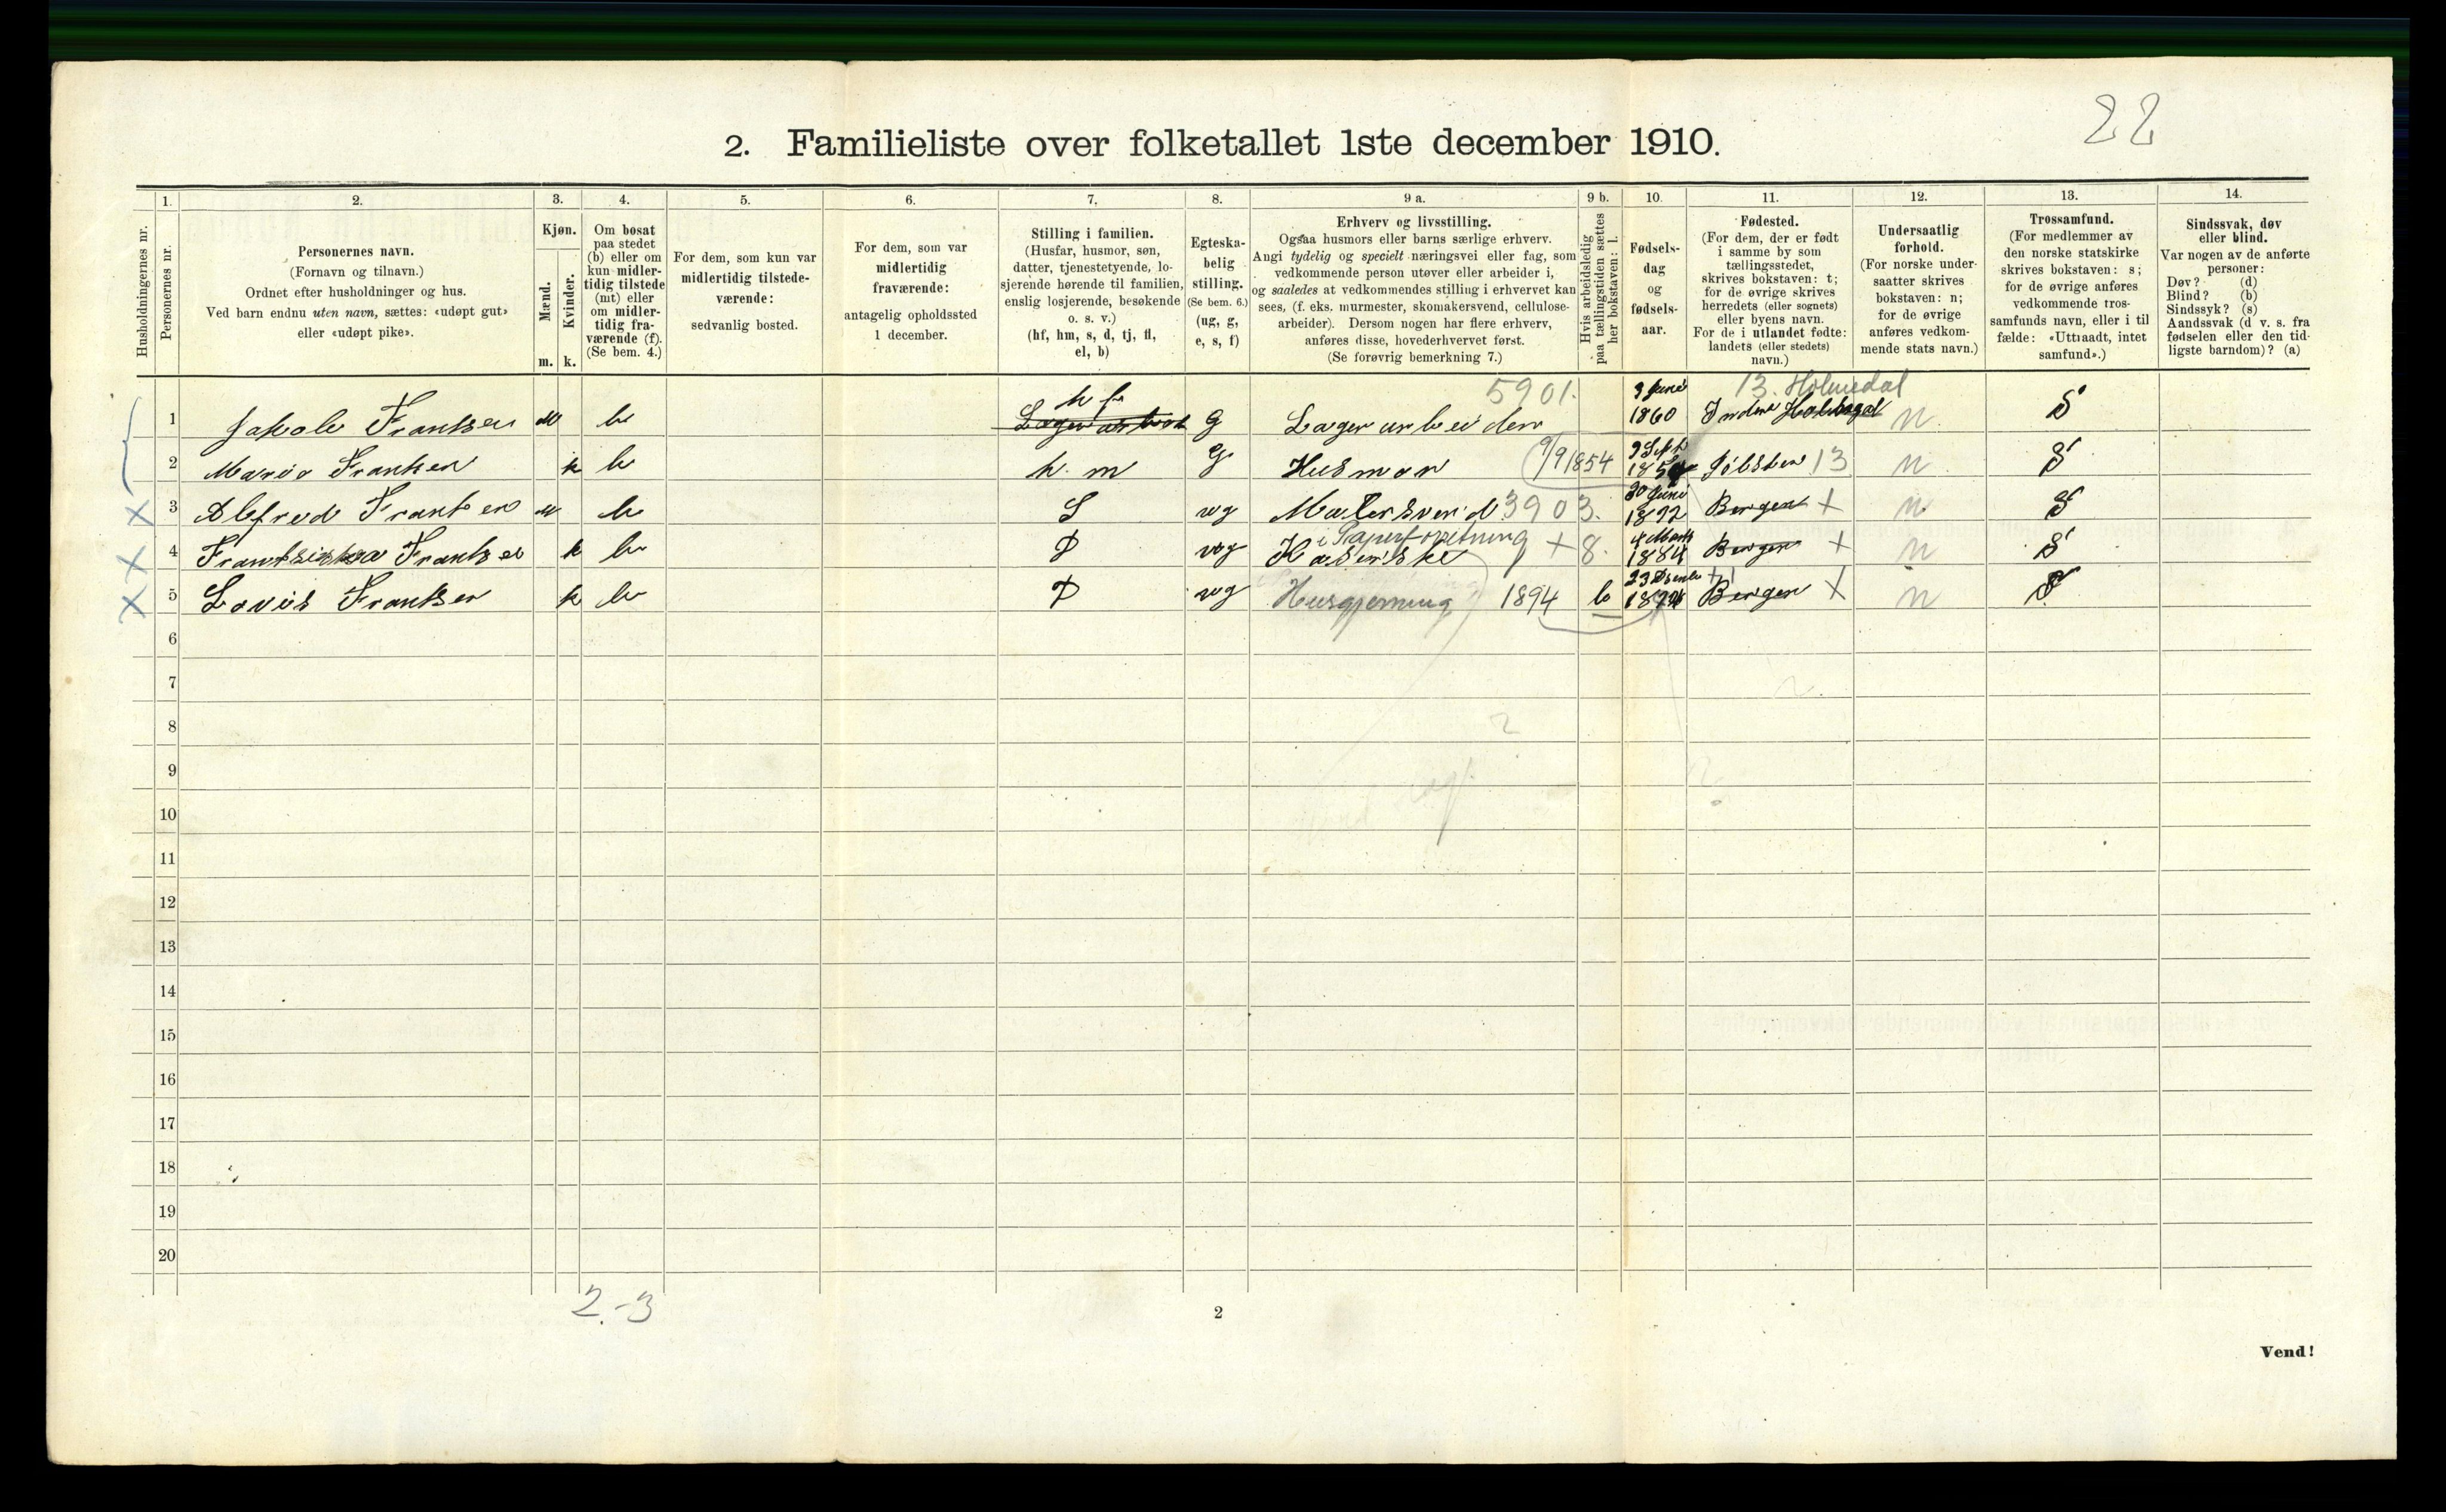 22
2. Familieliste over folketallet 1ste december 1910.
Husholdningernes nr.
1.
Personernes nr.
2.
Personernes navn.
(Fornavn og tilnavn.)
Ordnet efter husholdninger og hus.
Ved barn endnu uten navn, sættes: «udøpt gut»
eller «udøpt pike».
3.
Kjøn.
Mænd.
Kvinder.
m. k.
4.
Om bosat
paa stedet
(b) eller om
kun midler-
tidig tilstede
(mt) eller
om midler-
tidig fra-
værende (f).
(Se bem. 4.)
5.
For dem, som kun var
midlertidig tilstede-
værende:
sedvanlig bosted.
6.
For dem, som var
midlertidig
fraværende:
antagelig opholdssted
1 december.
7.
Stilling i familien.
(Husfar, husmor, søn,
datter, tjenestetyende, lo-
sjerende hørende til familien,
enslig losjerende, besøkende
o. s. v.)
(hf, hm, s, d, tj, fl,
el, b)
8.
Egteska-
belig
stilling.
(Se bem. 6.)
(ug, g,
e, s, f)
9 a.
Erhverv og livsstilling.
Ogsaa husmors eller barns særlige erhverv.
Angi tydelig og specielt næringsvei eller fag, som
vedkommende person utøver eller arbeider i,
og saaledes at vedkommendes stilling i erhvervet kan
sees, (f. eks. murmester, skomakersvend, cellulose-
arbeider). Dersom nogen har flere erhverv,
anføres disse, hovederhvervet først.
(Se forøvrig bemerkning 7.)
9 b.
Hvis arbeidsledig
paa tællingstiden sættes
her bokstaven: l.
10.
Fødsels-
dag
og
fødsels-
aar.
11.
Fødested.
(For dem, der er født
i samme by som
tællingsstedet,
skrives bokstaven: t;
for de øvrige skrives
herredets (eller sognets)
eller byens navn.
For de i utlandet fødte:
landets (eller stedets)
navn.)
12.
Undersaatlig
forhold.
(For norske under-
saatter skrives
bokstaven: n;
for de øvrige
anføres vedkom-
mende stats navn.)
13.
Trossamfund.
(For medlemmer av
den norske statskirke
skrives bokstaven: s;
for de øvrige anføres
vedkommende tros-
samfunds navn, eller i til
fælde: «Uttraadt, intet
samfund».)
14.
Sindssvak, døv
eller blind.
Var nogen av de anførte
personer:
Døv? (d)
Blind? (b)
Sindssyk? (s)
Aandssvak (d v. s. fra
fødselen eller den tid-
ligste barndom)? (a)
h f 5901. 3 Juni 13. Holmedal
1 Jakob Frantsen M b G Lagerarbeider 1860 Indre n S
9/9 1854 9 Sept
2 Maria Frantsen k b h. m G Husmor Jølster 13 n S
30 Juni
3 Alfred Frantsen M b S ug Malersvend 3903. 1892 Bergen + n S
i Papirforretning + 8. 4 Marts
4 Frantsiska Frantsen k b D ug Kaserske 1884 Bergen + n S
23 Desember
5 Lovis Frantsen k b D ug Husgjerning 1894 l Bergen + n S
6
7
8
9
10
11
12
13
14
15
16
17
18
19
20
2.-3
2
Vend!